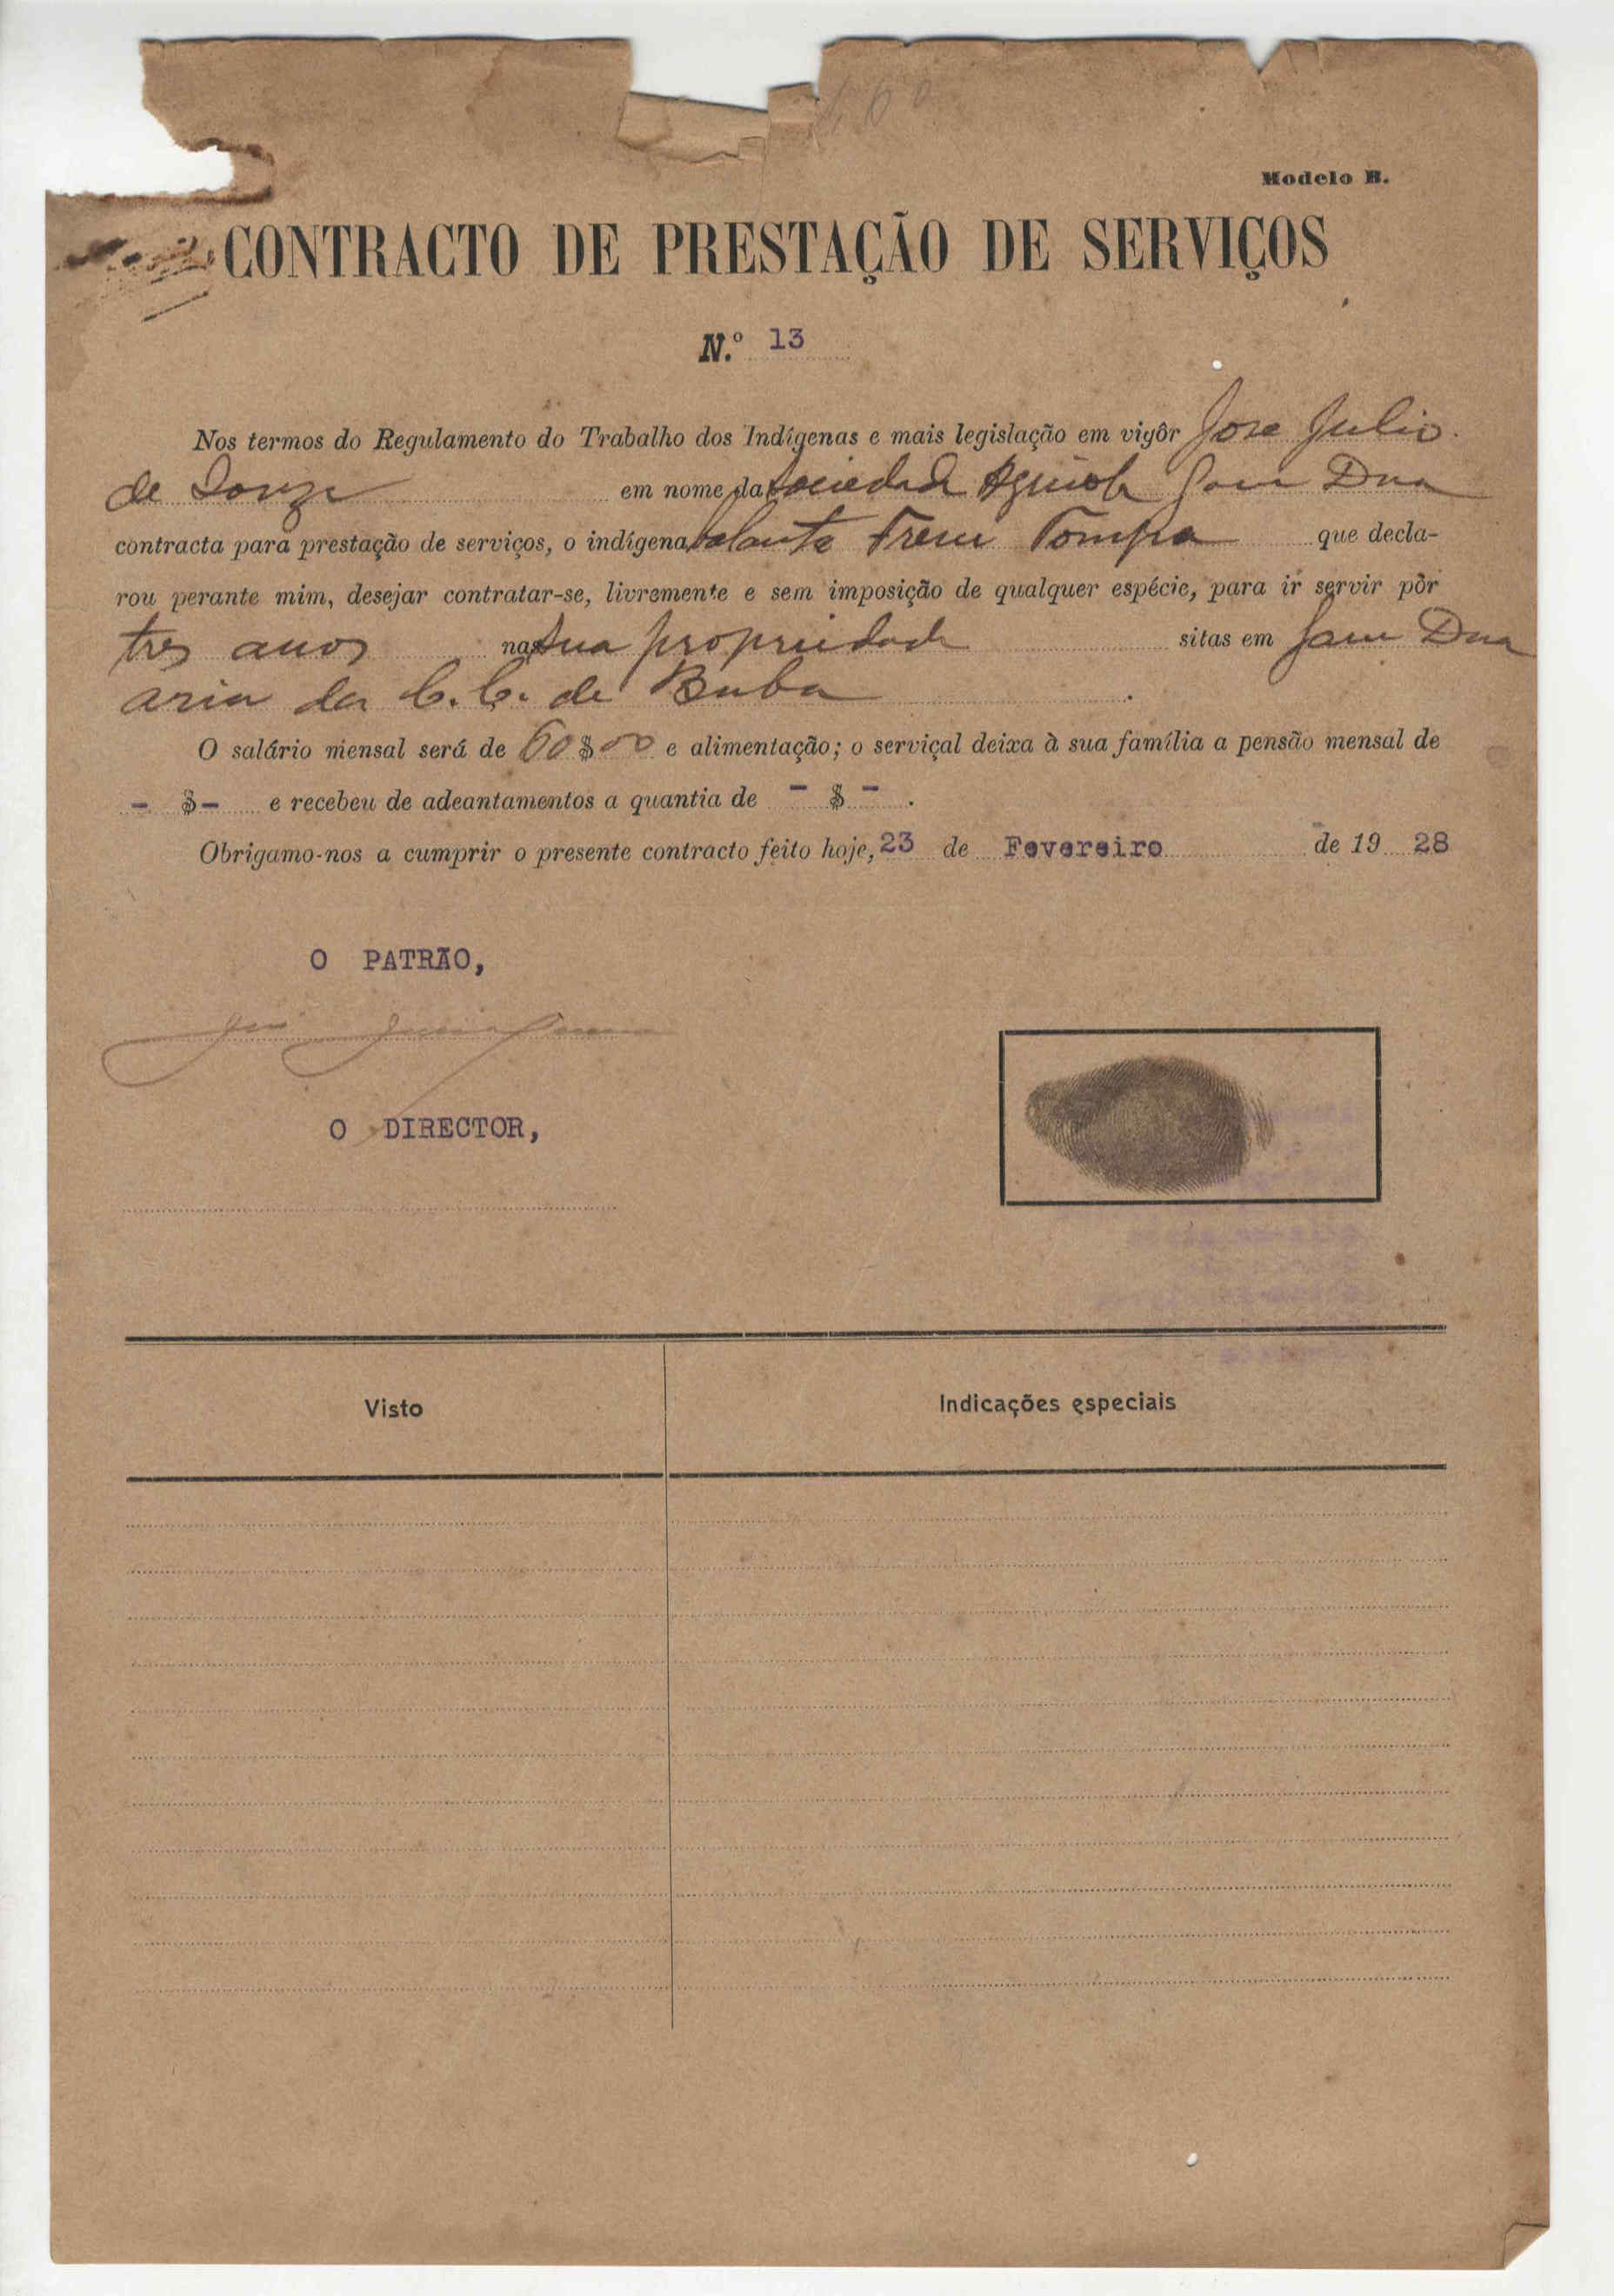 Modelo B.
CONTRACTO DE PRESTAÇÃO DE SERVIÇOS
N.º 13
Nos termos do Regulamento do Trabalho dos Indígenas e mais legislação em vigôr Jose Julio
de Souza em nome da Sociedade Agricola Gam Dua
contracta para prestação de serviços, o indígena que decla-
rou perante mim, desejar contratar-se, livremente e sem imposição de qualquer espécie, para ir servir pòr
tres anos na sua propriedade sitas em Gam Dua
aria da C. C. de Buba
O salário mensal será de 60$00 e alimentação; o serviçal deixa à sua família a pensão mensal de
- $ - e recebeu de adeantamentos a quantia de - $ - .
Obrigamo-nos a cumprir o presente contracto feito hoje, 23 de Fevereiro de 19 28
O PATRÃO,
O DIRECTOR,
Visto Indicações especiais